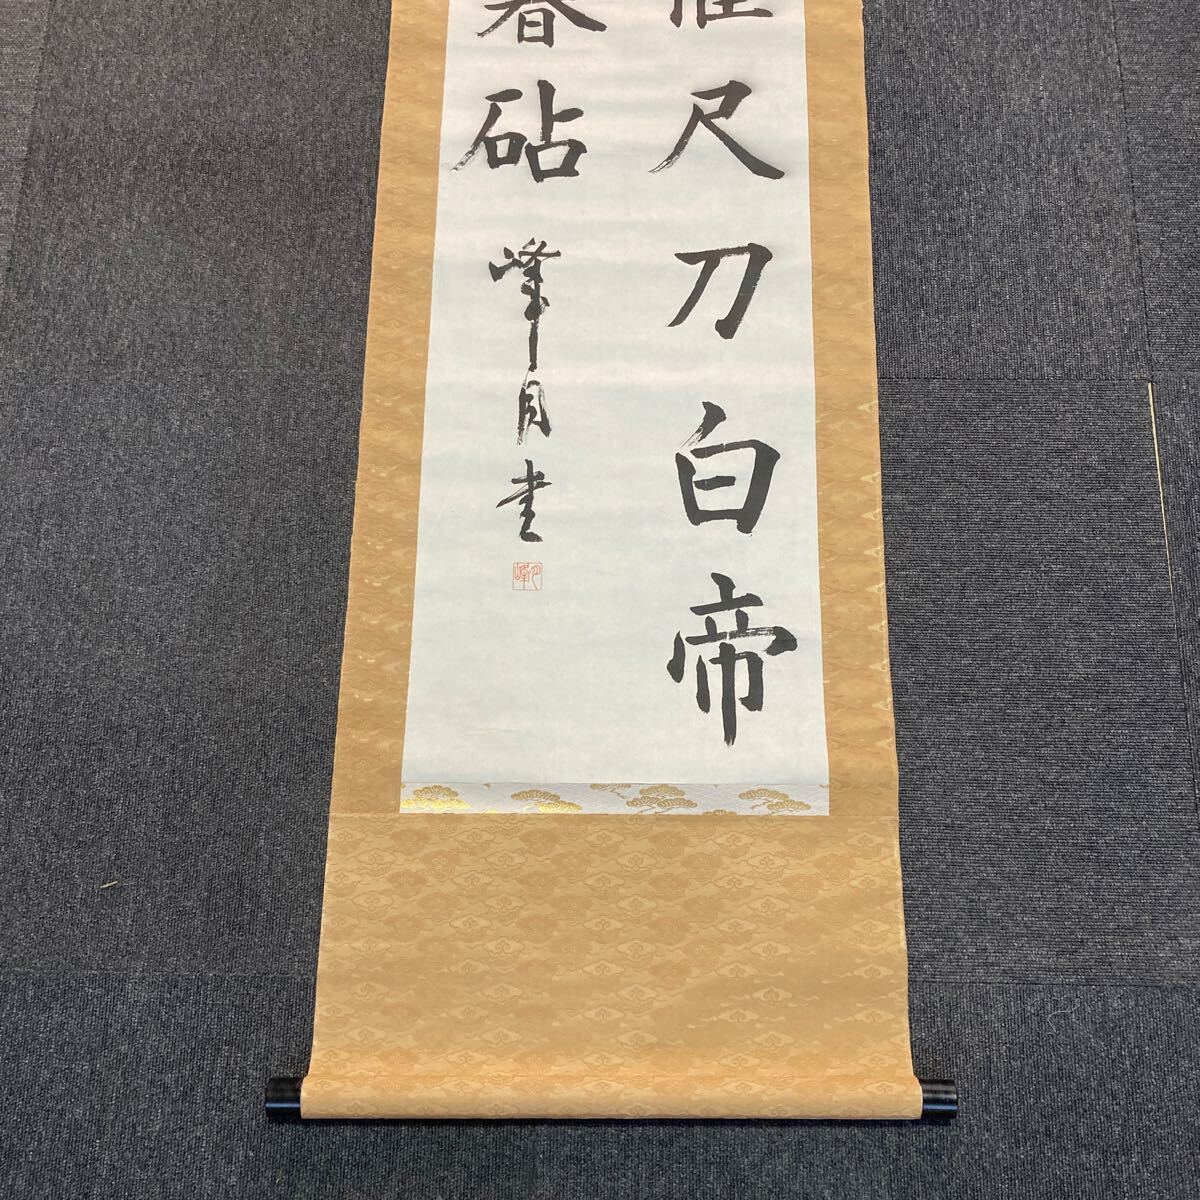 催尺刀白帝
暮砧
峰月書